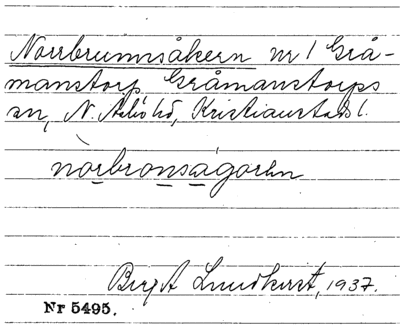 Norrbrunnsåkern nr 1 Grå-
manstorp Gråmanstorps
sn, N. Åsbo hd, Kristianstads l.
nòrbronsågorần
Birgit Lundkvist, 1937.
Nr 5495.